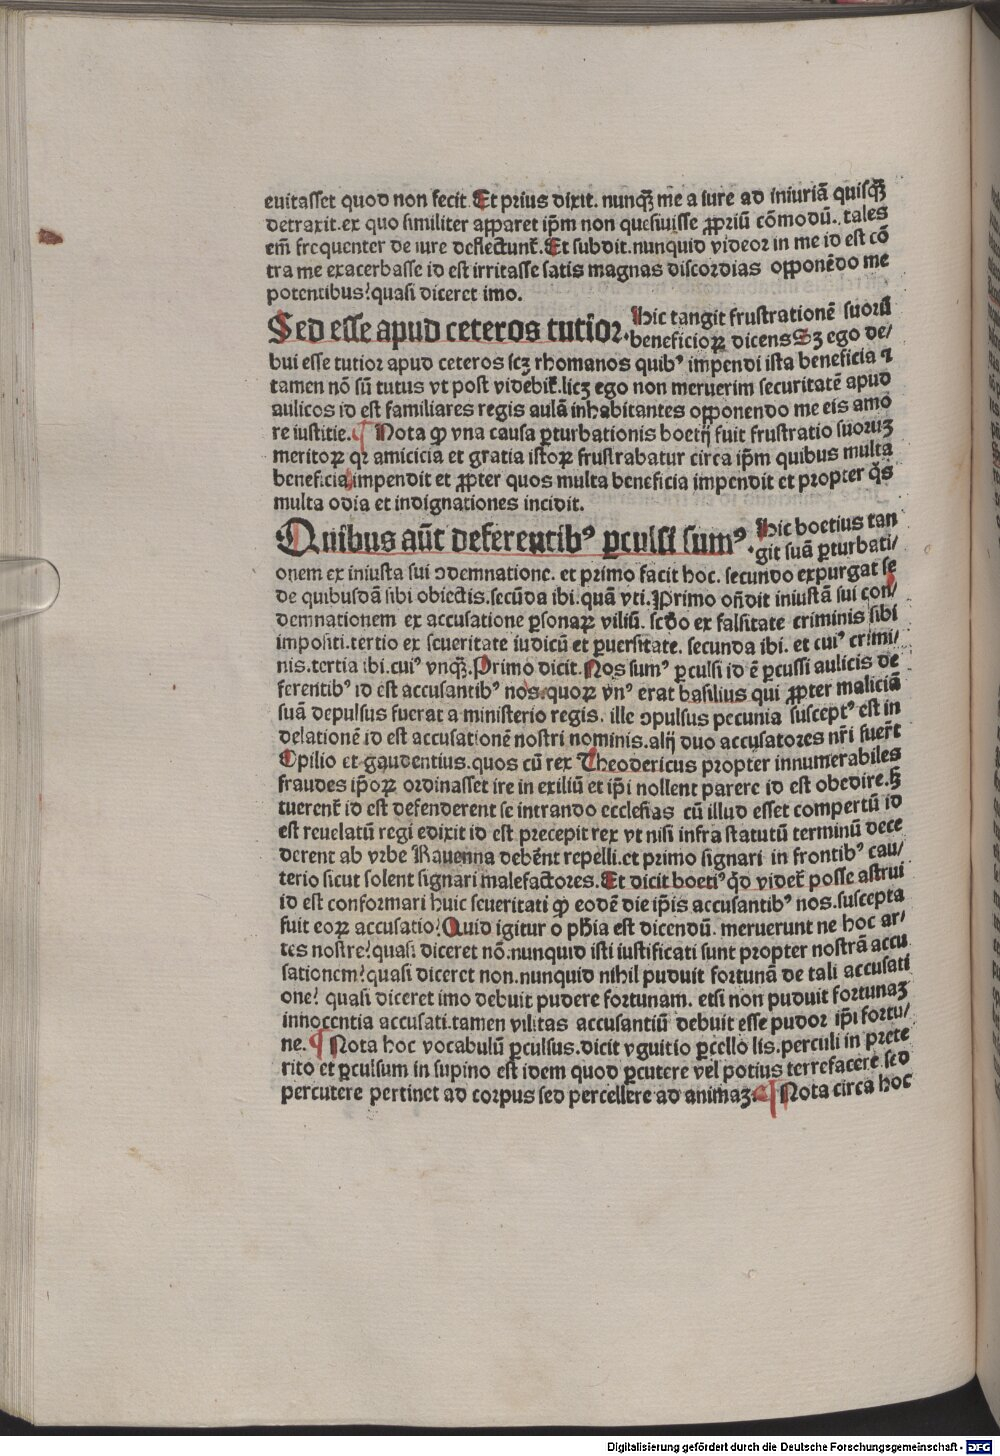 euitasset quod non fecit. Et prius dixit. nunqꝫ me a iure ad iniuriā quisqꝫ
detraxit. ex quo similiter apparet ip̄m non quesiuisse ꝓpriū cōmodū. tales
em̄ frequenter de iure deflectunt᷑. Et subdit. nunquid videor in me id est cō
tra me exacerbasse id est irritasse satis magnas discordias opponēdo me
potentibus? quasi diceret imo.
Sed esse apud ceteros tutior. Hic tangit frustrationē suorū
beneficioꝝ dicens Sꝫ ego de/
bui esse tutior apud ceteros scꝫ rhomanos quibꝰ impendi ista beneficia ⁊
tamen nō sū tutus vt post videbit᷑. licꝫ ego non meruerim securitatē apud
aulicos id est familiares regis aulā inhabitantes opponendo me eis amo
re iusticie. ¶ Nota ꝙ vna causa ꝑturbationis boetij fuit frustratio suoruꝫ
meritoꝝ qꝛ amicicia et gratia istoꝝ frustrabatur circa ip̄m quibus multa
beneficia impendit et ꝓpter quos multa beneficia impendit et propter q̄s
multa odia et indignationes incidit.
Quibus aūt deferentibꝰ ꝑculsi sumꝰ. Hic boetius tan
git suā ꝑturbati/
onem ex iniusta sui ↄdemnatione. et primo facit hoc. secundo expurgat se
de quibusdā sibi obiectis. secūda ibi. quā vti. Primo on̄dit iniustā sui con/
demnationem ex accusatione ꝑsonaꝝ viliū. scd̄o ex falsitate criminis sibi
impositi. tertio ex seueritate iudicū et ꝑuersitate. secunda ibi. et cuiꝰ crimi/
nis. tertia ibi. cuiꝰ vnqꝫ. Primo dicit. Nos sumꝰ ꝑculsi id ē ꝑcussi aulicis de
ferentibꝰ id est accusantibꝰ nos. quoꝝ vnꝰ erat basilius qui ꝓpter maliciā
suā depulsus fuerat a ministerio regis. ille ↄpulsus pecunia susceptꝰ est in
delationē id est accusationē nostri nominis. alij duo accusatores nr̄i fuer̄t
Opilio et gaudentius. quos cū rex Theodericus propter innumerabiles
fraudes ip̄oꝝ ordinasset ire in exiliū et ip̄i nollent parere id est obedire. ꝫ
tuerent᷑ id est defenderent se intrando ecclesias cū illud esset compertū id
est reuelatū regi edixit id est precepit rex vt nisi infra statutū terminū dece
derent ab vrbe Rauenna debēnt repelli. et primo signari in frontibꝰ cau/
terio sicut solent signari malefactores. Et dicit boetiꝰ qd̄ videt᷑ posse astrui
id est conformari huic seueritati ꝙ eodē die ip̄is accusantibꝰ nos. suscepta
fuit eoꝝ accusatio? Quid igitur o ph̄ia est dicendū. meruerunt ne hoc ar/
tes nostre? quasi diceret nō. nunquid isti iustificati sunt propter nostrā accu
sationem? quasi diceret non. nunquid nihil puduit fortunā de tali accusati
one? quasi diceret imo debuit pudere fortunam. etsi non puduit fortunaꝫ
innocentia accusati. tamen vilitas accusantiū debuit esse pudor ip̄i fortu/
ne. ¶ Nota hoc vocabulū ꝑculsus. dicit vguitio ꝑcello lis. perculi in prete
rito et ꝑculsum in supino est idem quod ꝑcutere vel potius terrefacere sed
percutere pertinet ad corpus sed percellere ad animaꝫ. ¶ Nota circa hoc
Digitalisierung gefördert durch die Deutsche Forschungsgemeinschaft - DFG